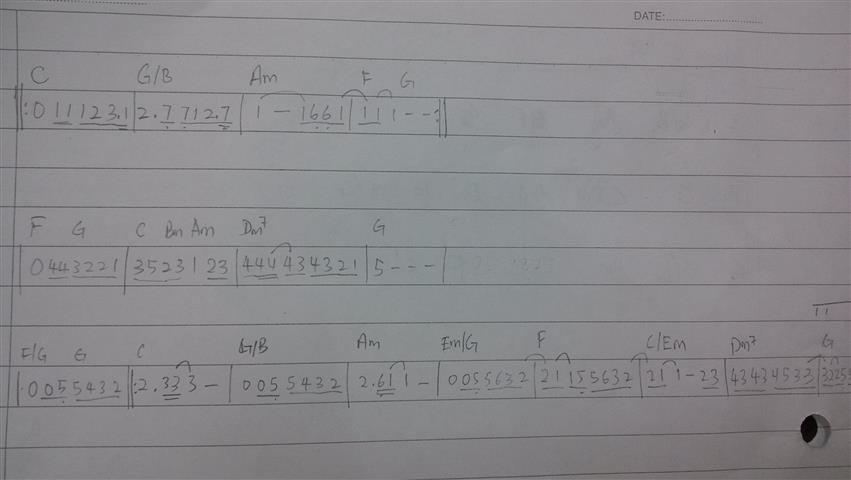 DATE:
C G/B Am F G
‖:0 11 123.1|2.7 712.7|1 - 1661|11 1 - -:‖
F G C Bm Am Dm7 G
|0443221|3523123|444434321|5 - - -|
F/G G C G/B Am Em/G F C/Em Dm7 G
|0055432‖:2.333 -|0055432|2.611 -|0055632|21155632|211-23|43434533|